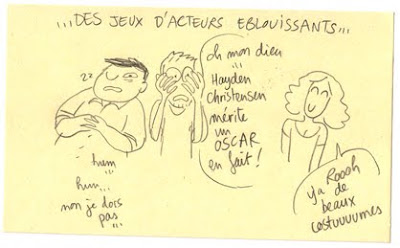 ...DES JEUX D'ACTEURS EBLOUISSANTS...
zz
hum
hum...
non je dois
pas...
oh mon dieu
...
Hayden
Christensen
mérite
un
OSCAR
en fait !
Roooh
y'a de
beaux
costuuuumes